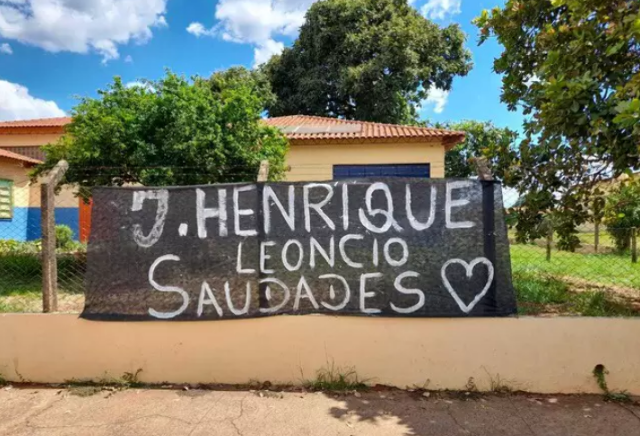 J. HENRIQUE
LEONCIO
SAUDADES